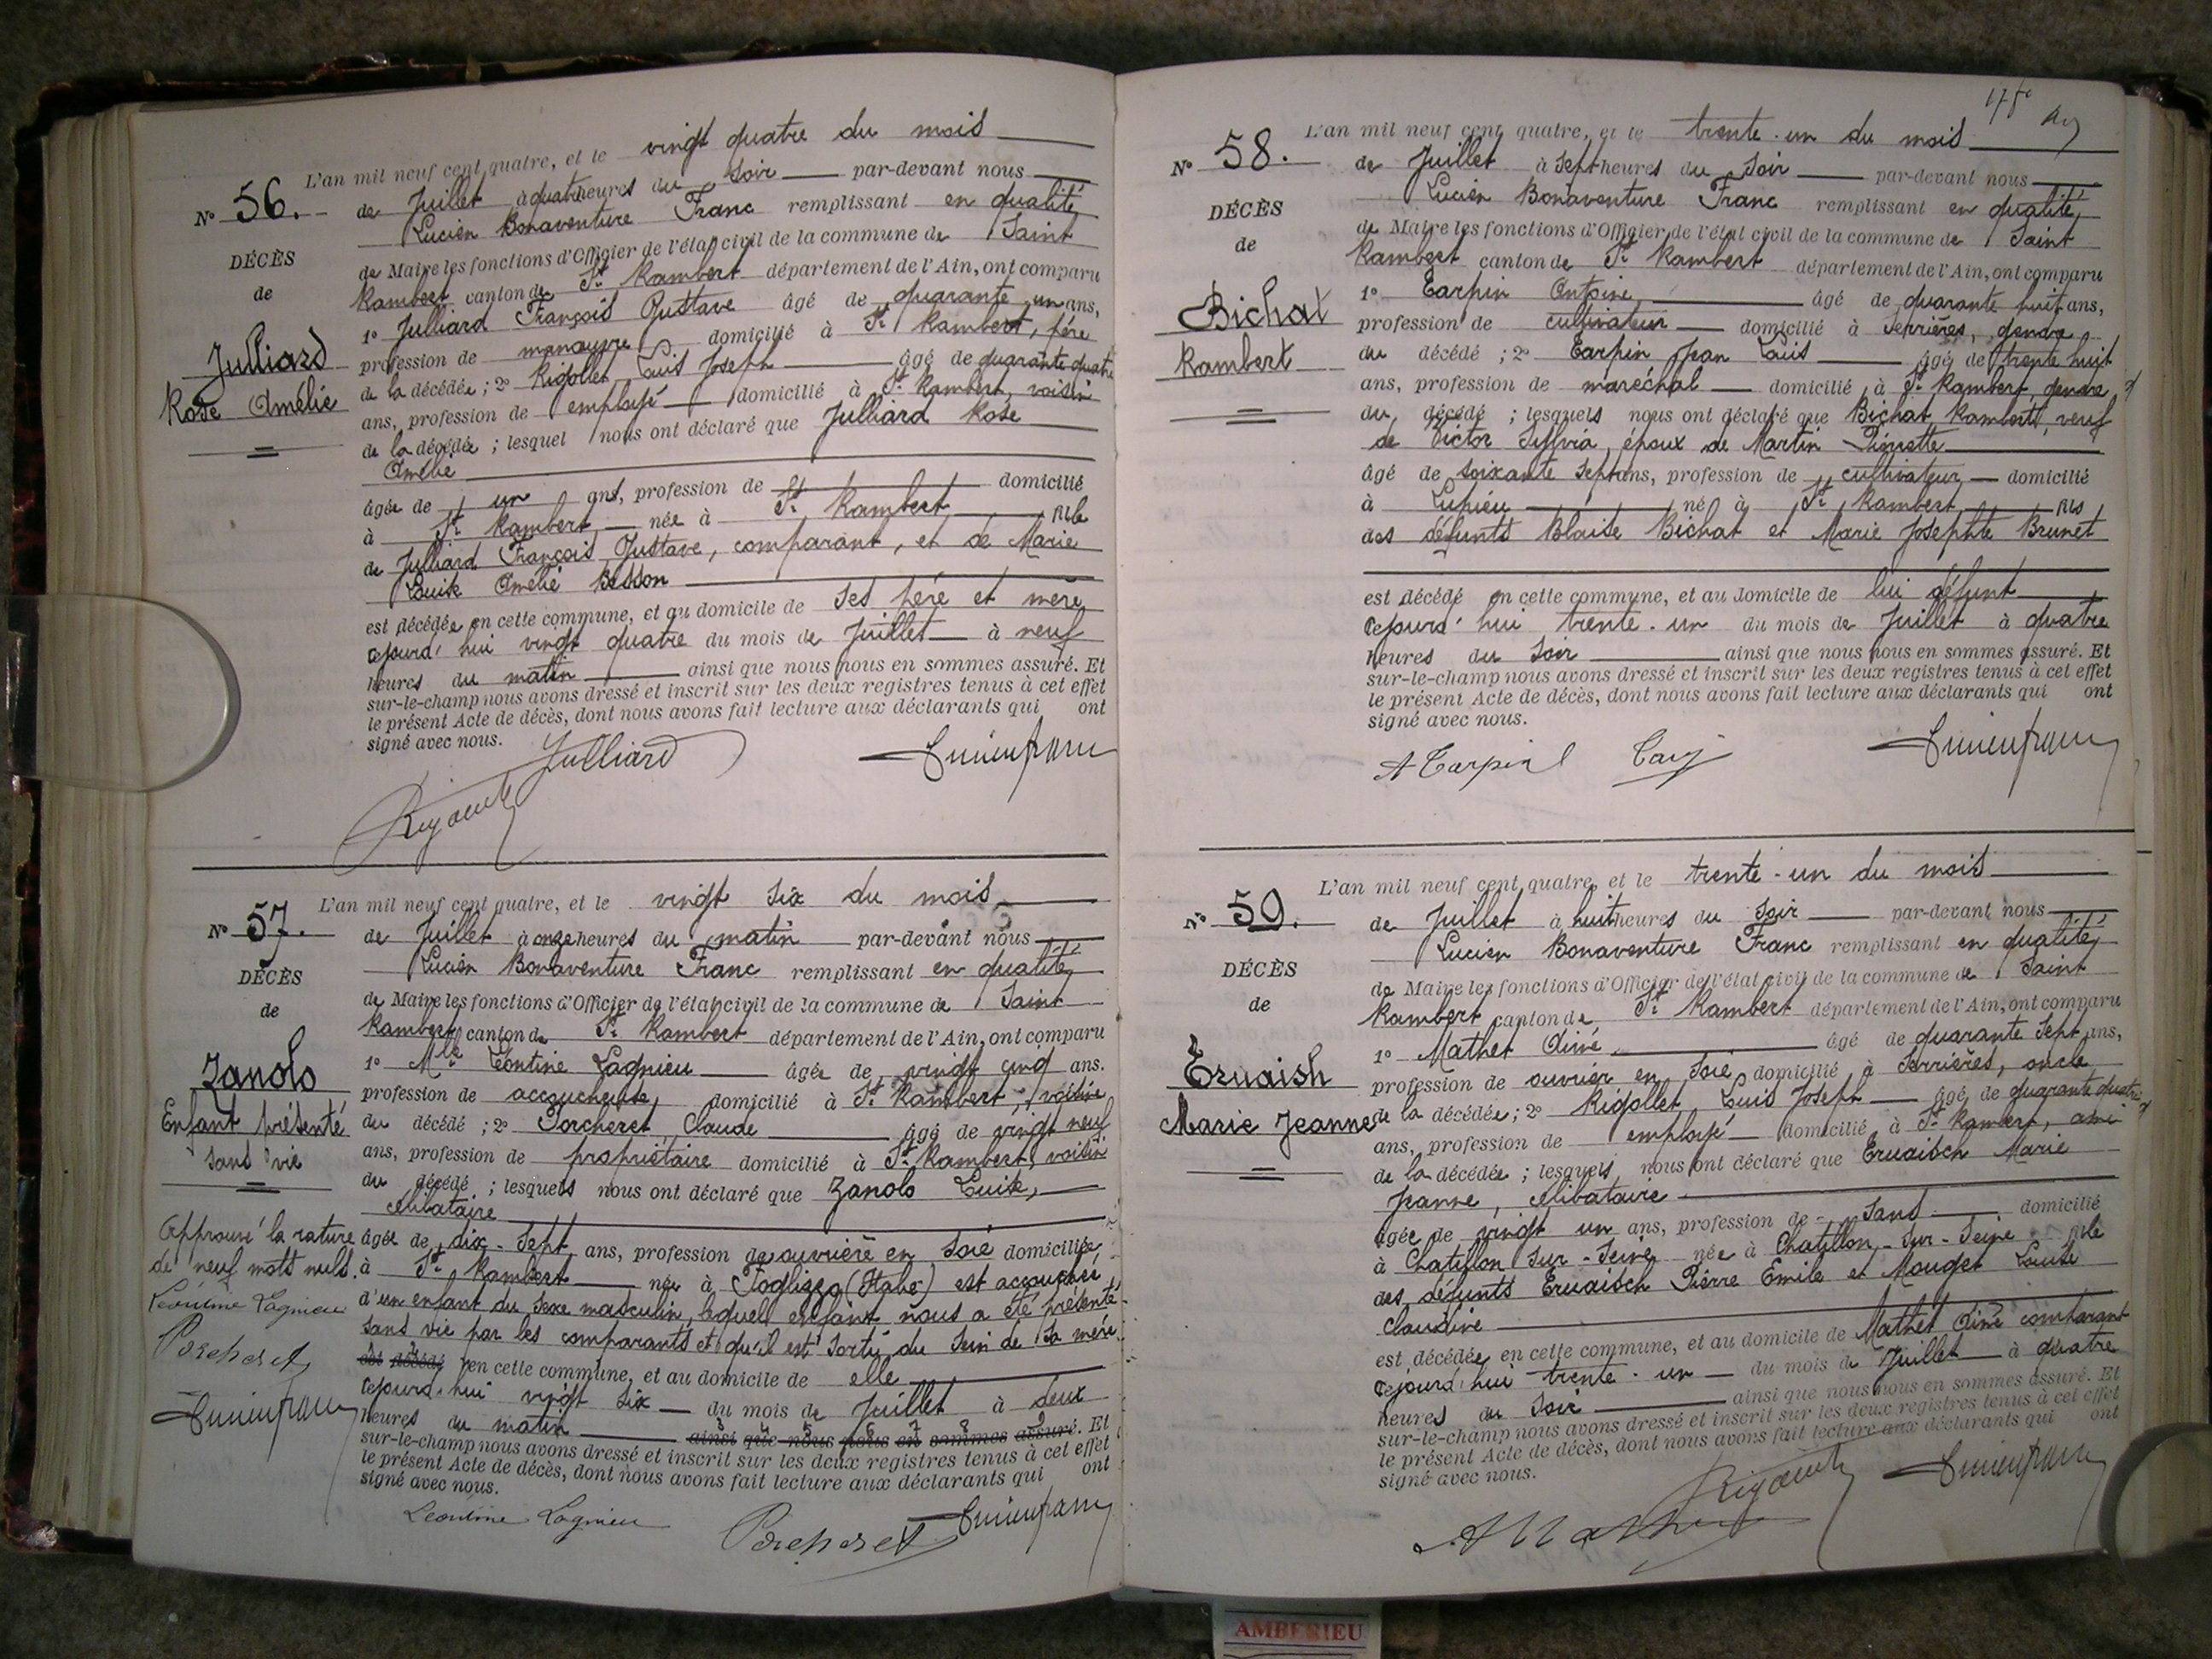 L'an mil neuf cent quatre, et le vingt quatre du mois
N° 56.
de Juillet à quatre heures du Soir par-devant nous
Lucien Bonaventure Franc remplissant en qualité
DÉCÈS
de Maire les fonctions d'Officier de l'état civil de la commune de Saint
de
Rambert canton de St Rambert département de l'Ain, ont comparu
1° Julliard François Gustave âgé de quarante un ans,
Julliard
profession de manœuvre domicilié à St Rambert, père
Rose Amélie
de la décédée ; 2° Rigollet Louis Joseph âgé de quarante quatre
ans, profession de employé domicilié à St Rambert, voisin
de la décédée ; lesquel nous ont déclaré que Julliard Rose
Amélie
âgée de un ans, profession de domicilié
à St Rambert née à St Rambert fille
de Julliard François Gustave, comparant, et de Marie
Louise Amélie Besson
est décédée en cette commune, et au domicile de ses père et mère
cejourd'hui vingt quatre du mois de Juillet à neuf
heures du matin ainsi que nous nous en sommes assuré. Et
sur-le-champ nous avons dressé et inscrit sur les deux registres tenus à cet effet
le présent Acte de décès, dont nous avons fait lecture aux déclarants qui ont
signé avec nous.
Julliard
L'an mil neuf cent quatre, et le vingt six du mois
N° 57.
de Juillet à onze heures du matin par-devant nous
Lucien Bonaventure Franc remplissant en qualité
DÉCÈS
de Maire les fonctions d'Officier de l'état civil de la commune de Saint
de
Rambert canton de St Rambert département de l'Ain, ont comparu
Zanolo
1° Mlle Léontine Lagnieu âgée de vingt cinq ans.
Enfant présenté
profession de accoucheuse, domicilié à St Rambert, voisine
sans vie
du décédé ; 2° Porcheret Claude âgé de vingt neuf
ans, profession de propriétaire domicilié à St Rambert, voisin
du décédé ; lesquels nous ont déclaré que Zanolo Louise,
célibataire
Approuvé la rature
de neuf mots nuls.
Léontine Lagnieu
Porcheret
âgée de dix-sept ans, profession de ouvrière en soie domiciliée
à St Rambert née à Foglizzo (Italie) est accouchée
d'un enfant du sexe masculin, lequel enfant nous a été présenté
sans vie par les comparants et qu'il est sorti du sein de sa mère
est décédé en cette commune, et au domicile de elle
cejourd'hui vingt six du mois de Juillet à deux
heures du matin ainsi que nous nous en sommes assuré. Et
sur-le-champ nous avons dressé et inscrit sur les deux registres tenus à cet effet
le présent Acte de décès, dont nous avons fait lecture aux déclarants qui ont
signé avec nous.
Léontine Lagnieu Porcheret
L'an mil neuf cent quatre, et le trente-un du mois
N° 58.
de Juillet à sept heures du Soir par-devant nous
Lucien Bonaventure Franc remplissant en qualité
DÉCÈS
de Maire les fonctions d'Officier de l'état civil de la commune de Saint
de
Rambert canton de St Rambert département de l'Ain, ont comparu
Bichat
1° Tarpin Antoine, âgé de quarante huit ans,
profession de cultivateur domicilié à Serrières, gendre
Rambert
du décédé ; 2° Tarpin Jean Louis âgé de trente huit
ans, profession de maréchal domicilié à St Rambert, gendre
du décédé ; lesquels nous ont déclaré que Bichat Rambert, veuf
de Victor Sylvia, époux de Martin Pierrette
âgé de soixante sept ans, profession de cultivateur domicilié
à Lupieu né à St Rambert fils
des défunts Blaise Bichat et Marie Josephte Brunet
est décédé en cette commune, et au domicile de lui défunt
cejourd'hui trente-un du mois de Juillet à quatre
heures du soir ainsi que nous nous en sommes assuré. Et
sur-le-champ nous avons dressé et inscrit sur les deux registres tenus à cet effet
le présent Acte de décès, dont nous avons fait lecture aux déclarants qui ont
signé avec nous.
A Tarpin
L'an mil neuf cent quatre, et le trente-un du mois
N° 59.
de Juillet à huit heures du Soir par-devant nous
Lucien Bonaventure Franc remplissant en qualité
DÉCÈS
de Maire les fonctions d'Officier de l'état civil de la commune de Saint
de
Rambert canton de St Rambert département de l'Ain, ont comparu
1° Mathet Aimé, âgé de quarante sept ans,
Eruaish
profession de ouvrier en soie domicilié à Serrières, oncle
Marie Jeanne
de la décédée ; 2° Rigollet Louis Joseph âgé de quarante quatre
ans, profession de employé domicilié à St Rambert, ami
de la décédée ; lesquels nous ont déclaré que Eruaisch Marie
Jeanne, célibataire
âgée de vingt un ans, profession de sans domicilié
à Chatillon sur-Seine née à Chatillon-sur-Seine fille
des défunts Eruaisch Pierre Emile et Mouget Louise
Claudine
est décédée en cette commune, et au domicile de Mathet Aimé comparant
cejourd'hui trente-un du mois de Juillet à quatre
heures du Soir ainsi que nous nous en sommes assuré. Et
sur-le-champ nous avons dressé et inscrit sur les deux registres tenus à cet effet
le présent Acte de décès, dont nous avons fait lecture aux déclarants qui ont
signé avec nous.
AMBERIEU